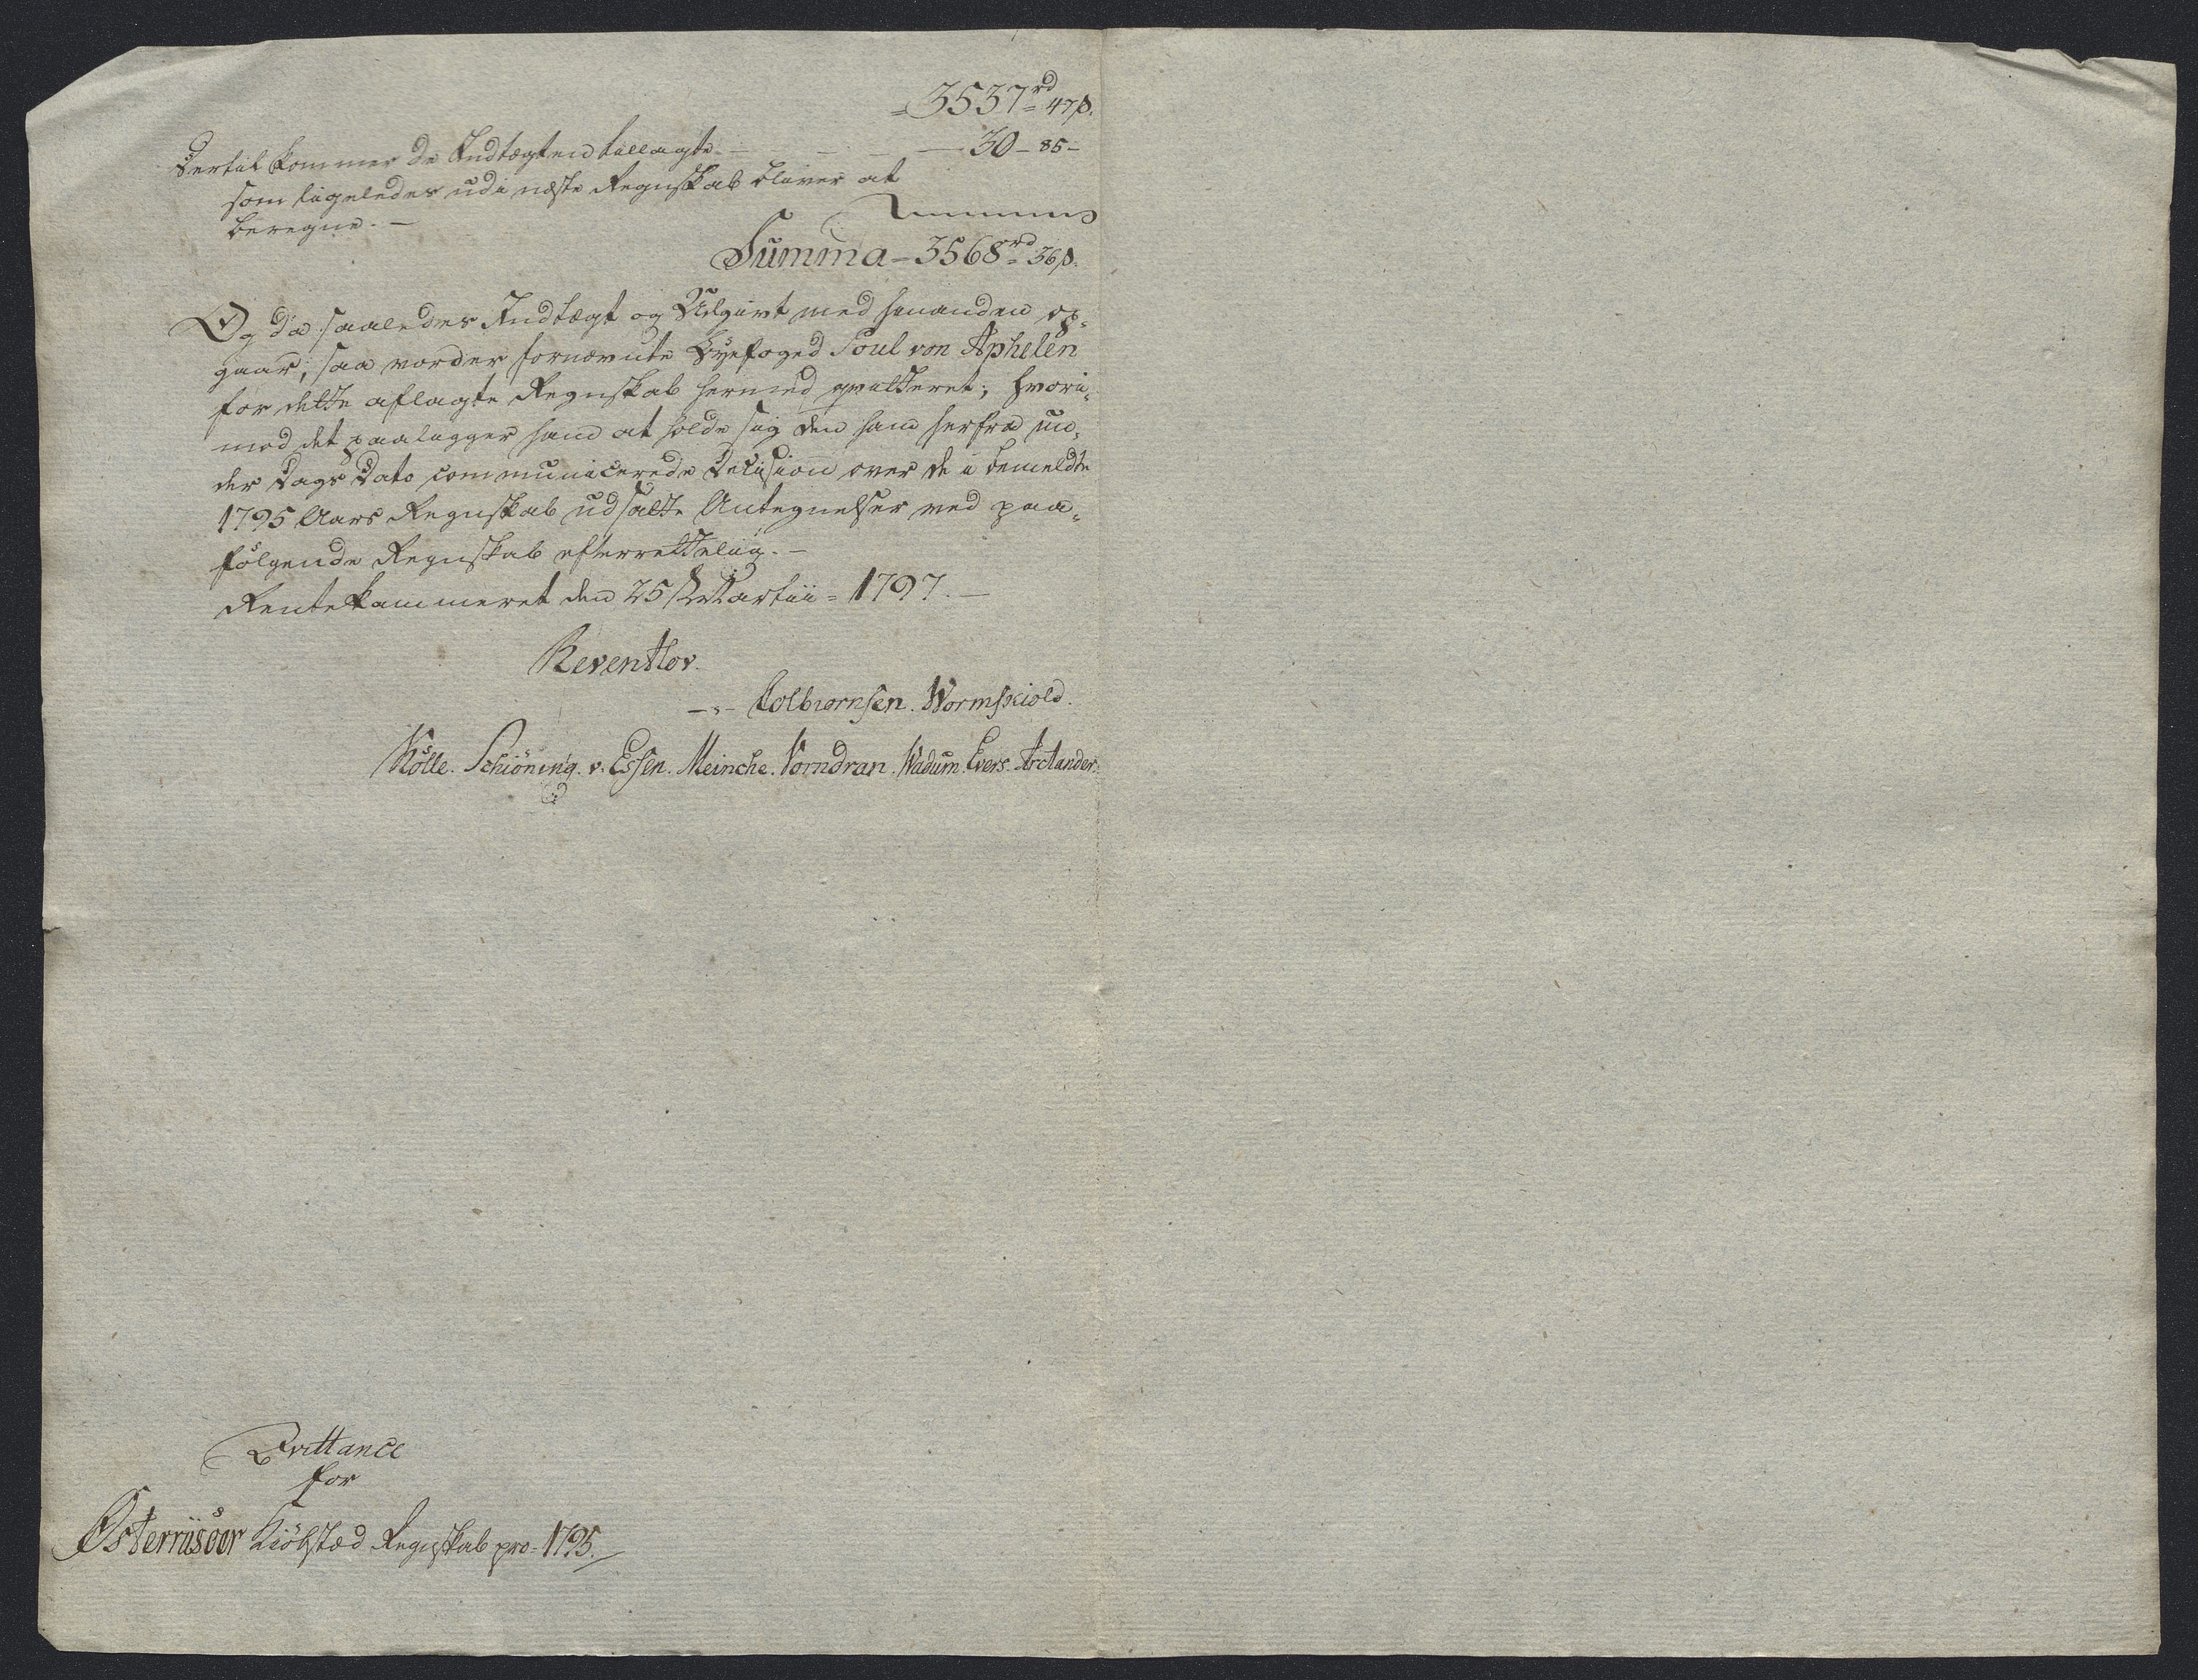 3537rd 47ß.
Dertil kommer de Indtægten tillagte - - - 30 - 85 -
som ligeledes udi næste Regnskab bliver at
beregne. -
Summa - 3568rd 36ß.
Og da saaledes Indtægt og Udgivt med hinanden op-
gaar; saa vorder fornævnte Byefoged Poul von Aphelen
for dette aflagte Regnskab hermed qvitteret; hvori-
mod det paaligger ham at holde sig den ham herfra un-
der Dags Dato communicerede Decision over de i bemeldte
1795 Aars Regnskab udsatte Antegnelser ved paa-
følgende Regnskab efterrettelig. -
Rentekammeret den 25 Martii = 1797. -
Reventlov.
Colbiørnsen. Wormskiold.
Kølle. Schiöning. v. Essen. Meinche. Vorndran. Wadum. Evers. Arctander.
Qvittance
for
Østerriisöer Kiöbstæd Regnskab pro 1795.